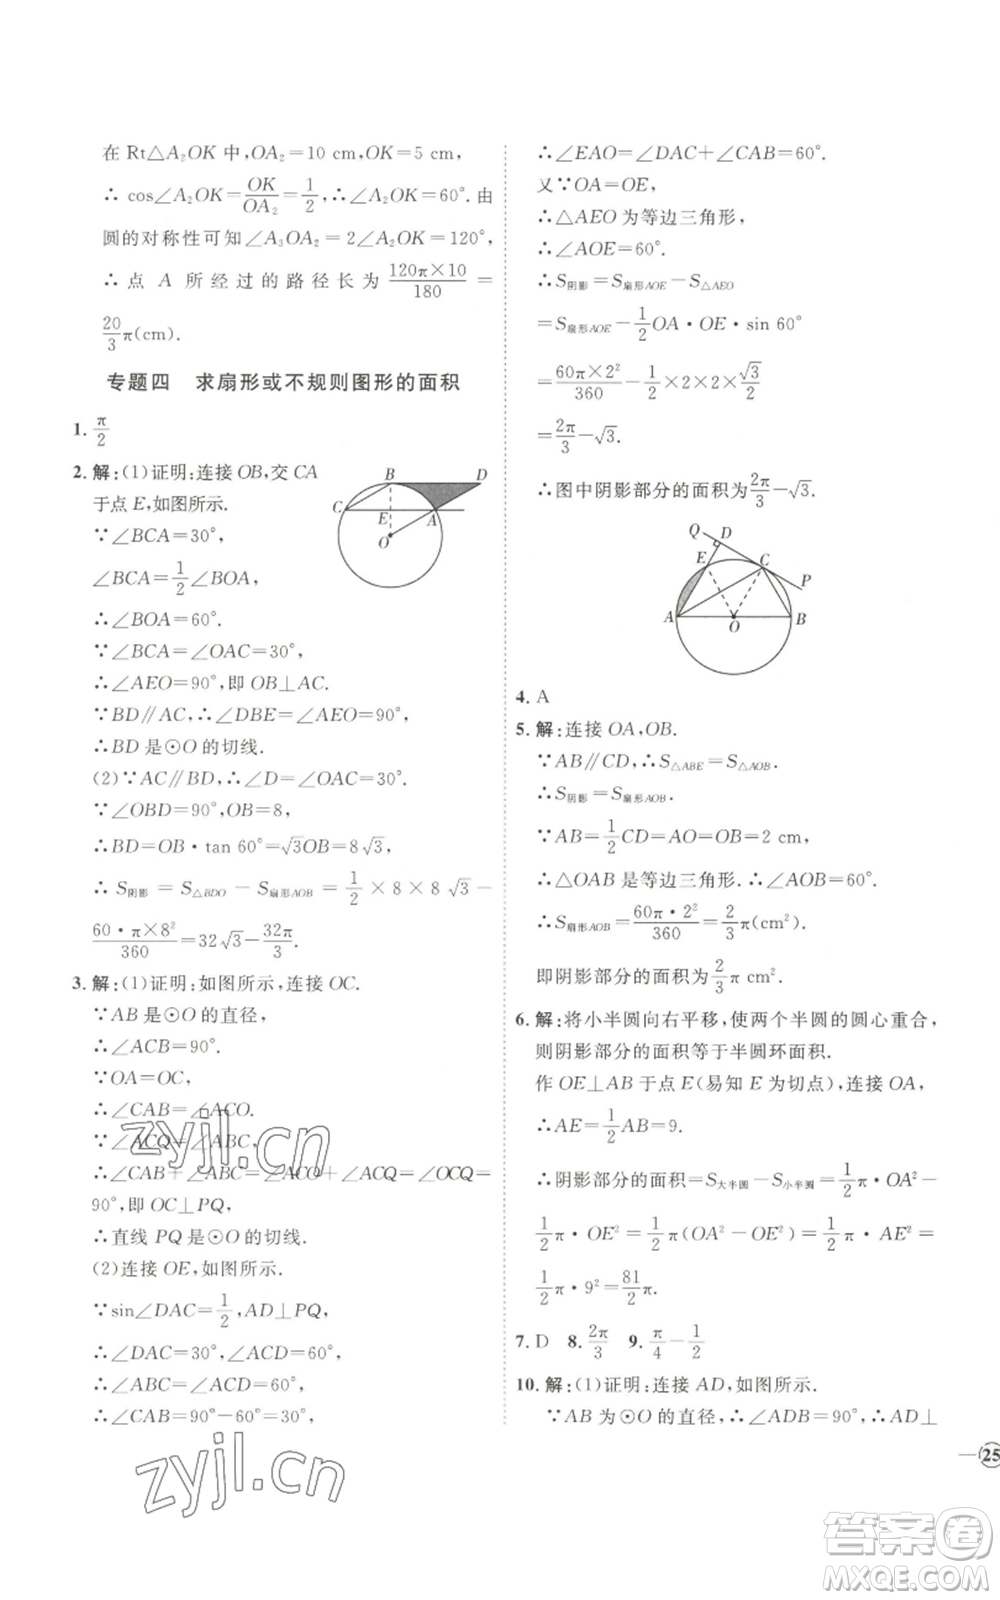 在 Rt△A₂OK 中,OA₂=10 cm,OK=5 cm,
∴ cos∠A₂OK=OK/OA₂=1/2,∴∠A₂OK=60°.由
圆的对称性可知∠A₃OA₂=2∠A₂OK=120°,
∴点 A 所经过的路径长为 120π×10/180 =
20/3 π(cm).
专题四 求扇形或不规则图形的面积
1. π/2
2. 解:(1)证明:连接 OB,交 CA
于点 E,如图所示.
∵∠BCA=30°,
∠BCA=1/2∠BOA,
∴∠BOA=60°.
∵∠BCA=∠OAC=30°,
∴∠AEO=90°,即 OB⊥AC.
∵BD∥AC,∴∠DBE=∠AEO=90°,
∴BD 是⊙O 的切线.
(2)∵AC∥BD,∴∠D=∠OAC=30°.
∵∠OBD=90°,OB=8,
∴BD=OB·tan 60°=√3OB=8√3,
∴S阴影=S△BDO-S扇形AOB=1/2×8×8√3-
60·π×8²/360=32√3-32π/3.
B D C E A O
3. 解:(1)证明:如图所示,连接 OC.
∵AB 是⊙O 的直径,
∴∠ACB=90°.
∵OA=OC,
∴∠CAB=∠ACO.
∵∠ACQ=∠ABC,
∴∠CAB+∠ABC=∠ACO+∠ACQ=∠OCQ=
90°,即 OC⊥PQ,
∴直线 PQ 是⊙O 的切线.
(2)连接 OE,如图所示.
∵sin∠DAC=1/2,AD⊥PQ,
∴∠DAC=30°,∠ACD=60°.
∴∠ABC=∠ACD=60°,
∴∠CAB=90°-60°=30°,
∴∠EAO=∠DAC+∠CAB=60°.
又∵OA=OE,
∴△AEO 为等边三角形,
∴∠AOE=60°.
∴S阴影=S扇形AOE-S△AEO
=S扇形AOE-1/2OA·OE·sin 60°
=60π×2²/360-1/2×2×2×√3/2
=2π/3-√3.
∴图中阴影部分的面积为2π/3-√3.
Q D E C P A O B
4. A
5. 解:连接 OA,OB.
∵AB∥CD,∴S△ABE=S△AOB.
∴S阴影=S扇形AOB.
∵AB=1/2CD=AO=OB=2 cm,
∴△OAB 是等边三角形.∴∠AOB=60°.
∴S扇形AOB=60π·2²/360=2/3π(cm²).
即阴影部分的面积为2/3π cm².
6. 解:将小半圆向右平移,使两个半圆的圆心重合,
则阴影部分的面积等于半圆环面积.
作 OE⊥AB 于点 E(易知 E 为切点),连接 OA,
∴AE=1/2AB=9.
∴阴影部分的面积=S大半圆-S小半圆=1/2π·OA²-
1/2π·OE²=1/2π(OA²-OE²)=1/2π·AE²=
1/2π·9²=81/2π.
7. D 8. 2π/3 9. π/4-1/2
10. 解:(1)证明:连接 AD,如图所示.
∵AB 为⊙O 的直径,∴∠ADB=90°,∴AD⊥
25
zyjl.cn
zyjl.cn
答案卷
MXQE.COM